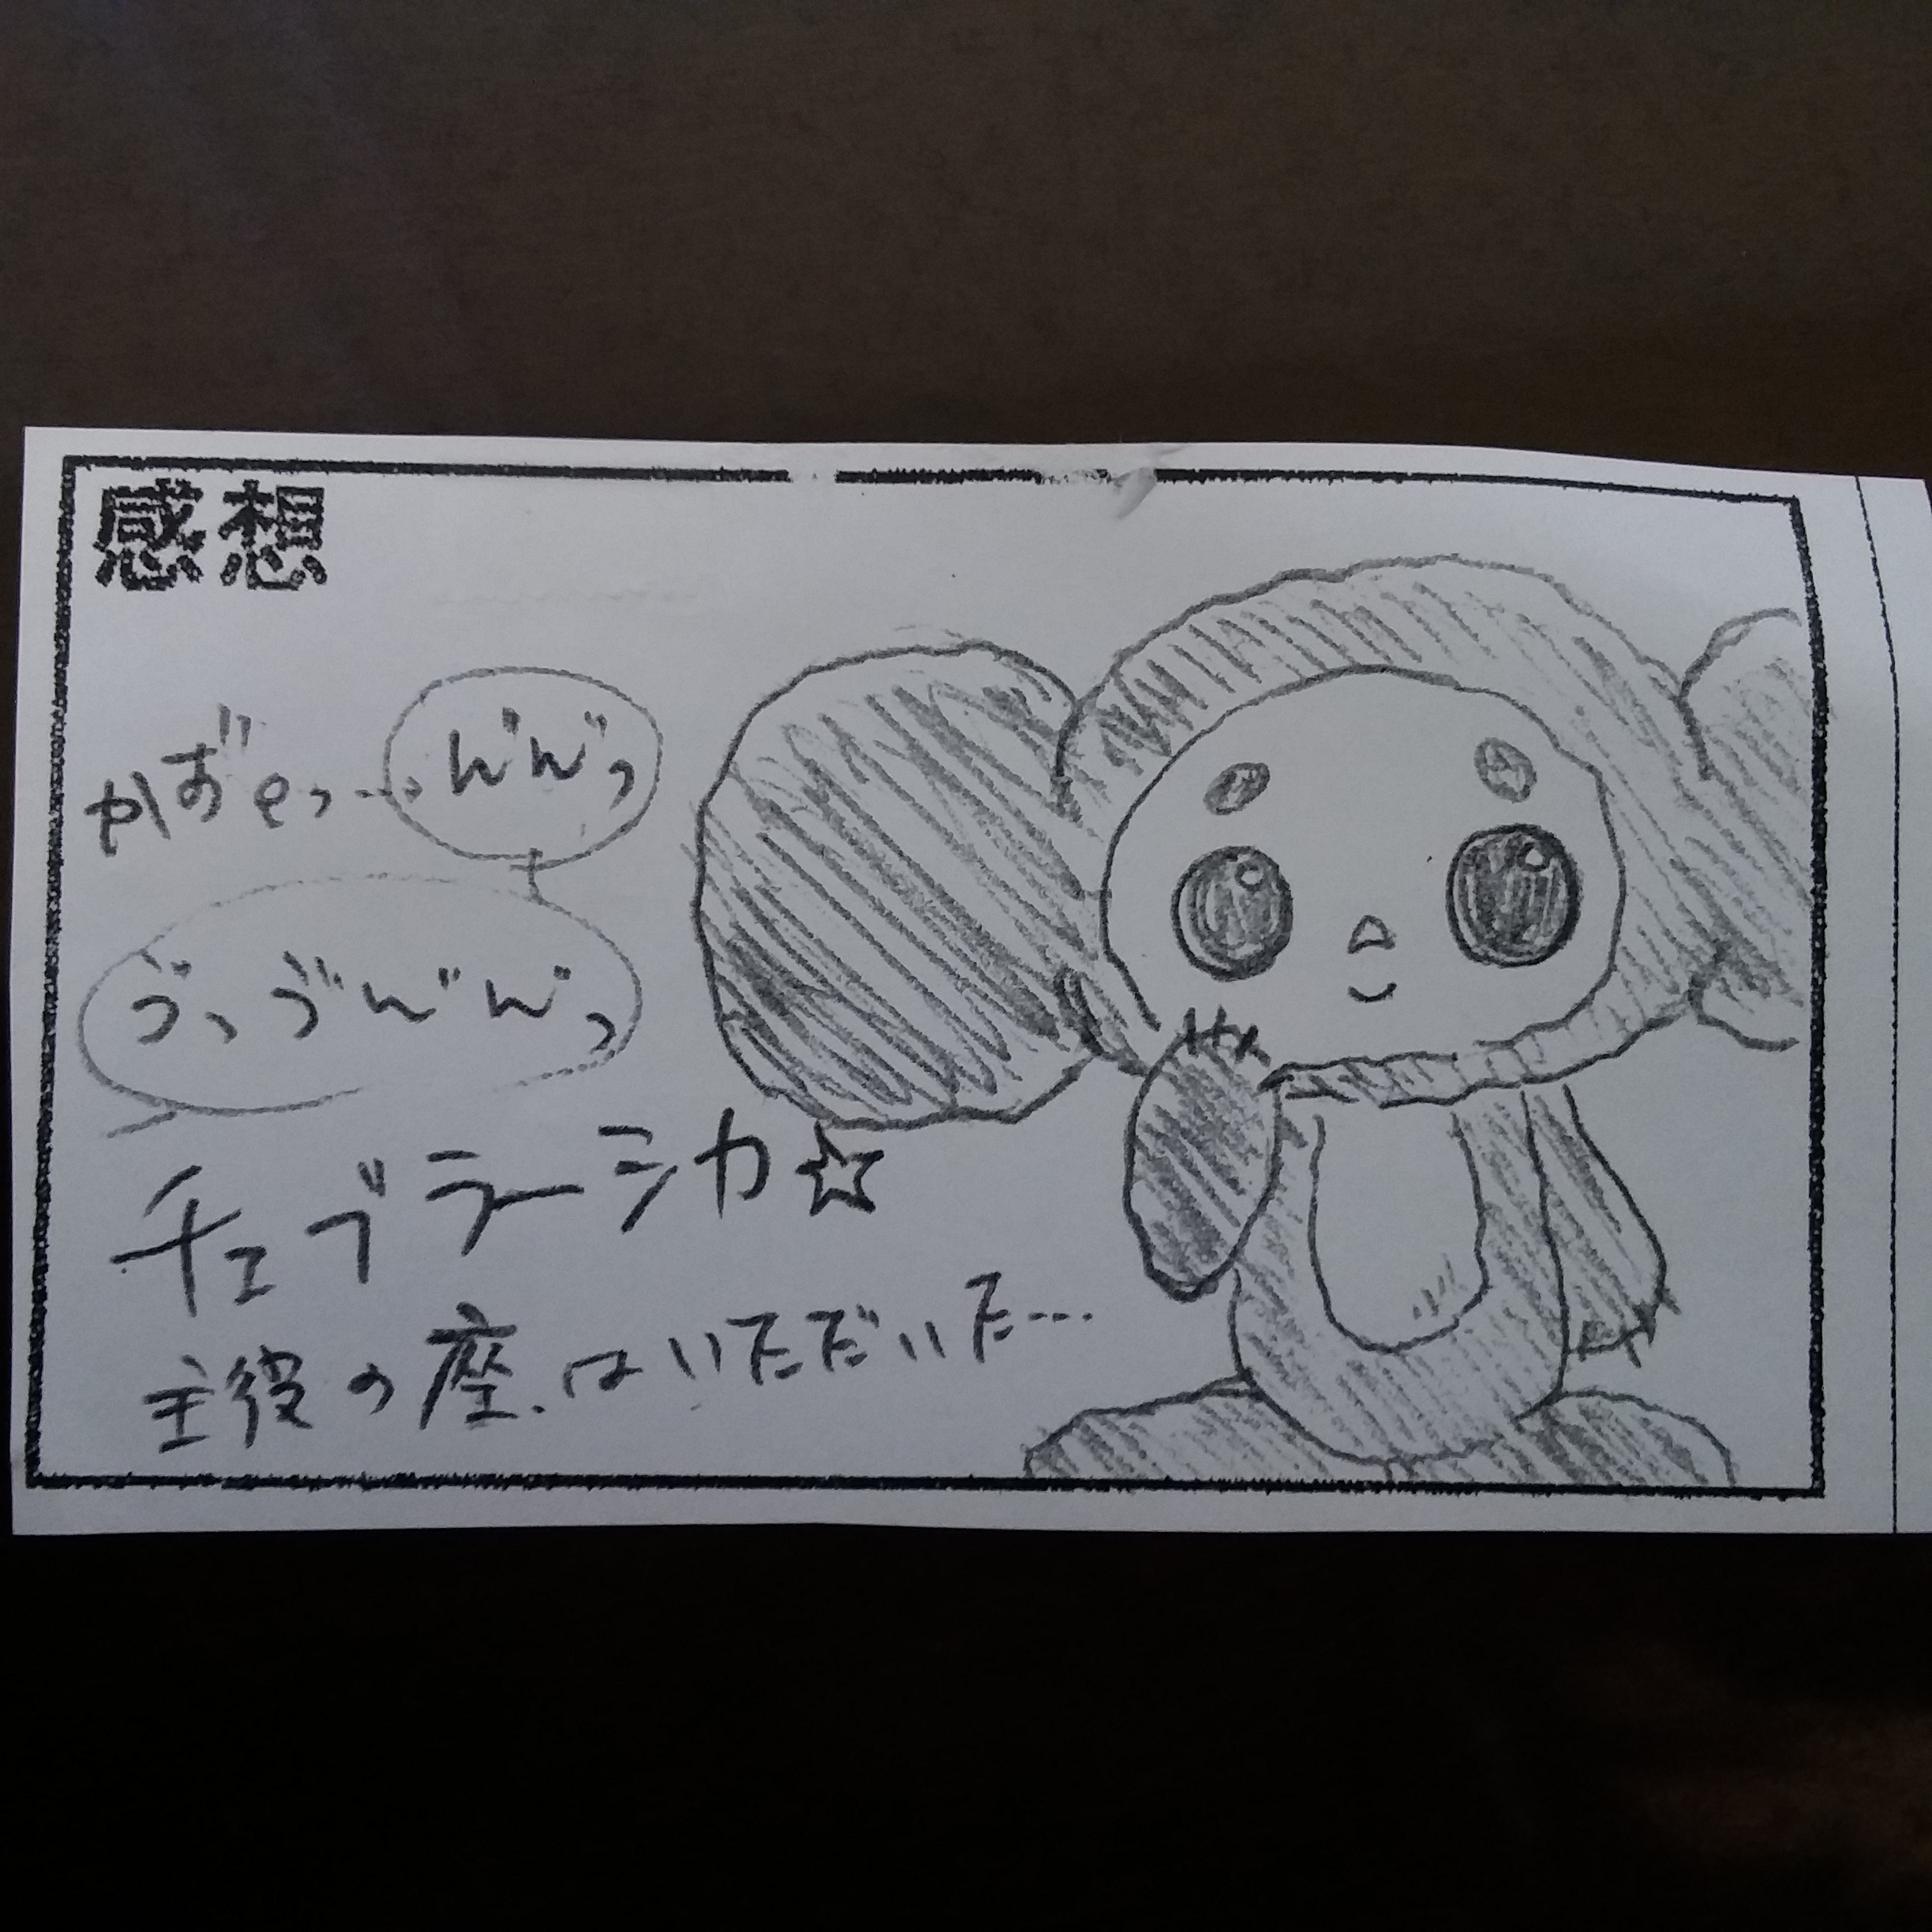 感想
かずぇっ…ん゛ん゛っ
ゔっゔん゛ん゛っ
チェブラーシカ☆
主役の座はいただいた…